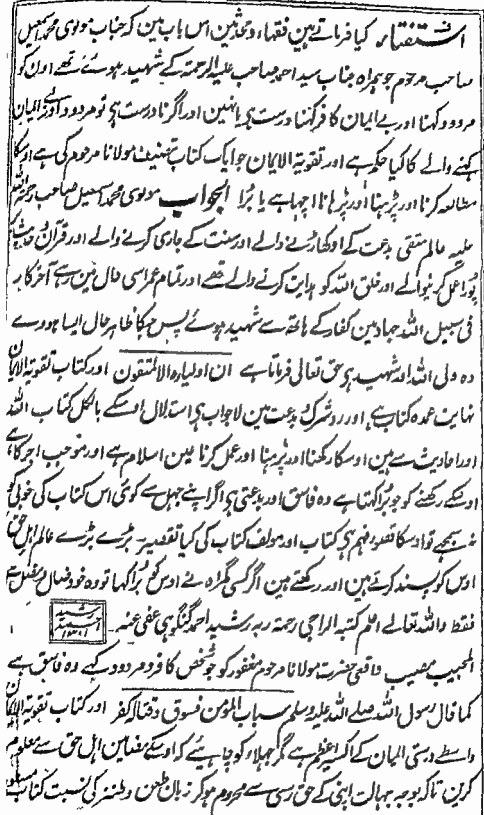 استفتاء کیا فرماتے ہین فقہاء و محدثین اس باب مین کہ جناب مولوی محمد اسمعیل
صاحب مرحوم جو ہمراہ جناب سید احمد صاحب علیہ الرحمۃ کے شہید ہوئے تھے اون کو
مردود کہنا اور بے ایمان کافر کہنا درست ہی یا نہین اور اگر نادرست ہی تو مردود اور بے ایمان
کہنے والے کا کیا حکم ہے اور تقویۃ الایمان جو ایک کتاب تصنیف مولانا مرحوم کی ہے اوسکا
مطالعہ کرنا اور پڑہنا اور پڑہانا اچہا ہے یا برا الجواب مولوی محمد اسمعیل صاحب رحمۃ اللہ
علیہ عالم متقی بدعت کے اوکھاڑنے والے اور سنت کے جاری کرنے والے اور قرآن و حدیث پر
پورا عمل کرنیوالے اور خلق اللہ کو ہدایت کرنے والے تھے اور تمام عمر اسی حال مین رہے آخر کار
فی سبیل اللہ جہاد مین کفار کے ہاتھ سے شہید ہوئے پس جسکا ظاہر حال ایسا ہووے
وہ ولی اللہ اور شہید ہی حق تعالی فرماتا ہے ان اولیاءہ الا المتقون اور کتاب تقویۃ الایمان
نہایت عمدہ کتاب ہے اور رد شرک و بدعت مین لاجواب ہی استدلال اوسکے بالکل کتاب اللہ
اور احادیث سے ہین اوسکا رکھنا اور پڑہنا اور عمل کرنا عین اسلام ہے اور موجب اجر کا ہے
اوسکے رکھنے کو جو برا کہتا ہے وہ فاسق اور بدعتی ہی اگر اپنے جہل سے کوئی اس کتاب کی خوبی کو
نہ سمجھے تو اوسکا قصور فہم ہی کتاب اور مولف کتاب کی کیا تقصیر بڑے بڑے عالم اہل حق
اوس کو پسند کرتے ہین اور رکھتے ہین اگر کسی گمراہ نے اوس کو برا کہا تو وہ خود ضال و مضل ہے
فقط واللہ تعالے اعلم کتبہ الراجی رحمۃ ربہ رشید احمد گنگوہی عفی عنہ رشید احمد ۱۳۰۱
المجیب مصیب واقعی حضرت مولانا مرحوم مغفور کو جو شخص کافر و مردود کہے وہ فاسق ہے
کما قال رسول اللہ صلے اللہ علیہ وسلم سباب المؤمن فسوق وقتالہ کفر اور کتاب تقویۃ الایمان
واسطے درستی ایمان کے اکسیر اعظم ہے مگر جہلاء کو چاہیئے کہ اوسکے مضامین اہل حق سے معلوم
کرین تاکہ بوجہ جہالت اپنی کے حق رسی سے محروم ہو کر زبان طعن و طنز کی نسبت کتاب